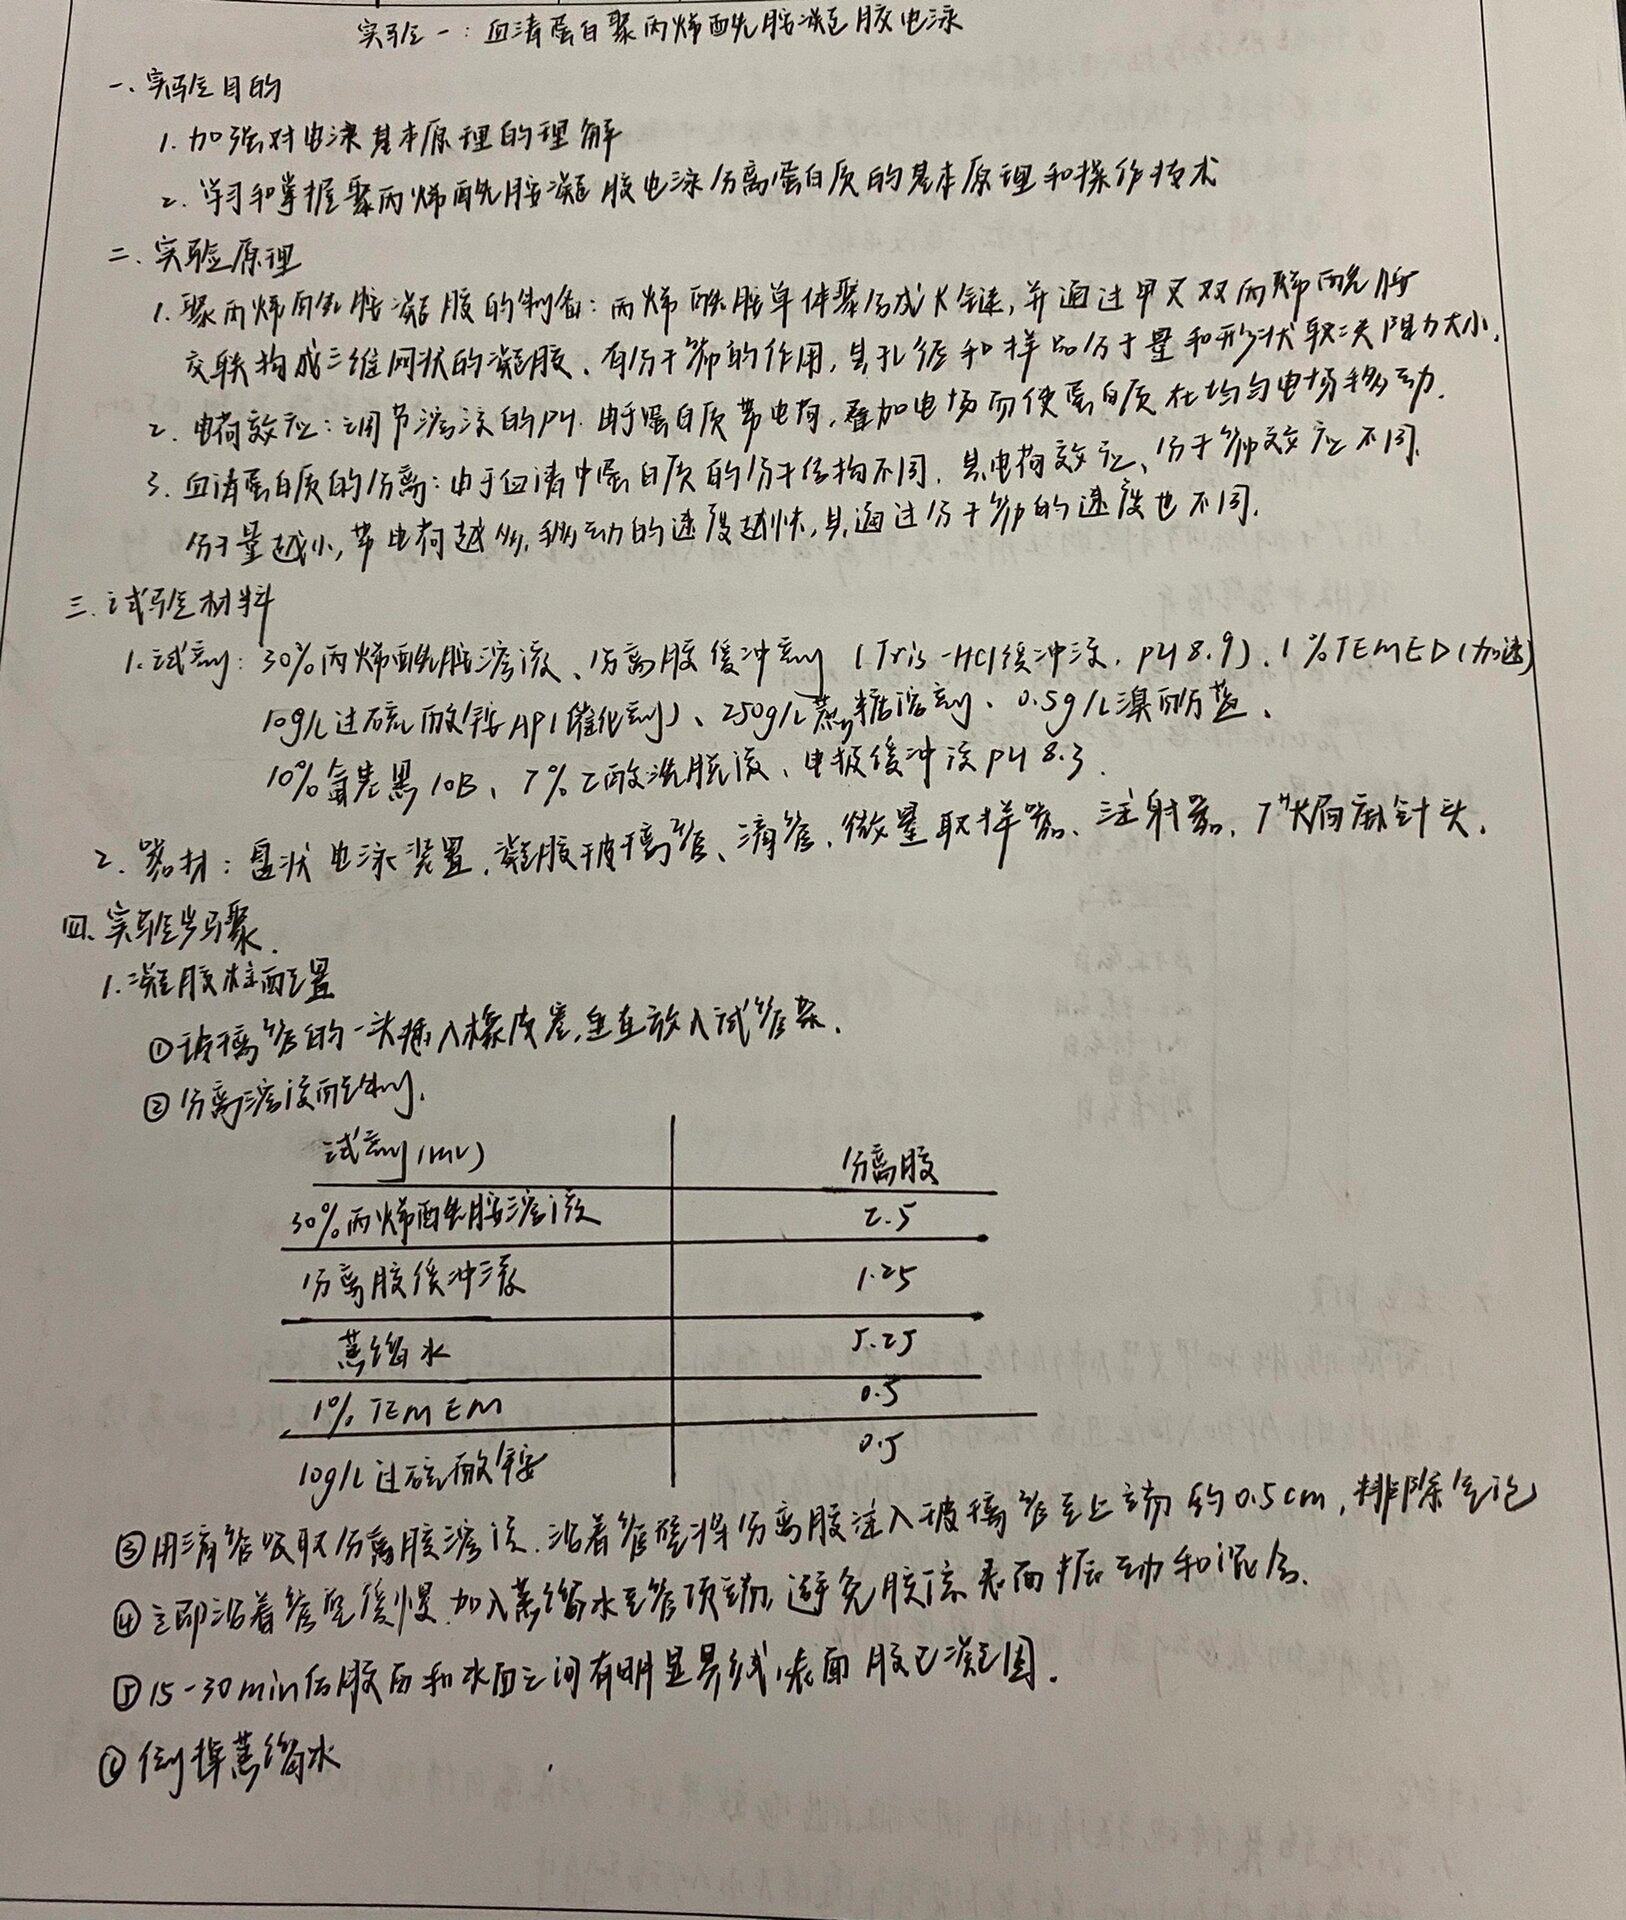 实验一：血清蛋白聚丙烯酰胺凝胶电泳
一、实验目的
1. 加强对电泳基本原理的理解
2. 学习和掌握聚丙烯酰胺凝胶电泳分离蛋白质的基本原理和操作技术
二、实验原理
1. 聚丙烯酰胺凝胶的制备：丙烯酰胺单体聚合成长链，并通过甲叉双丙烯酰胺
交联构成三维网状的凝胶、有分子筛的作用，其孔径和样品分子量和形状取决阻力大小.
2. 电荷效应：调节溶液的PH. 由于蛋白质带电荷，叠加电场而使蛋白质在均匀电场移动.
3. 血清蛋白质的分离：由于血清中蛋白质的分子结构不同，其电荷效应、分子筛效应不同.
分子量越小，带电荷越多，移动的速度越快，其通过分子筛的速度也不同.
三、试验材料
1. 试剂：30%丙烯酰胺溶液、分离胶缓冲剂（Tris-HCl缓冲液，PH 8.9）、1%TEMED（加速）
10g/L过硫酸铵AP（催化剂）、250g/L蔗糖溶剂、0.5g/L溴酚蓝、
10%氨基黑10B、7%乙酸洗脱液、电极缓冲液PH 8.3.
2. 器材：盘状电泳装置，凝胶玻璃管、滴管，微量取样器、注射器，7#长局麻针头.
四、实验步骤.
1. 凝胶柱配置
①玻璃管的一头插入橡皮塞，垂直放入试管架.
②分离溶液配制.
试剂（mL） 分离胶
30%丙烯酰胺溶液 2.5
分离胶缓冲液 1.25
蒸馏水 5.25
1% TEMEM 0.5
10g/L过硫酸铵 0.5
③用滴管吸取分离胶溶液. 沿着管壁将分离胶注入玻璃管至上端约0.5cm，排除气泡
④立即沿着管壁缓慢加入蒸馏水至管顶端，避免胶液表面振动和混合.
⑤15-30min后胶面和水面之间有明显界线，表面胶已凝固.
⑥倒掉蒸馏水